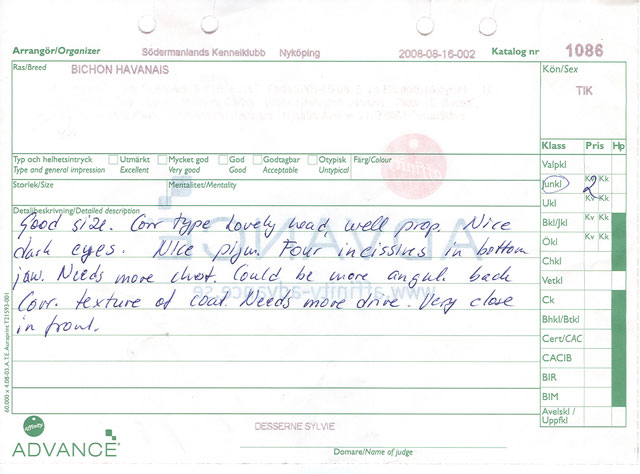 Arrangör/Organizer Södermanlands Kennelklubb Nyköping 2008-08-16-002 Katalog nr 1086
Ras/Breed BICHON HAVANAIS Kön/Sex
TIK
Klass Pris Hp
Typ och helhetsintryck Utmärkt Mycket god God Godtagbar Otypisk Färg/Colour
Type and general impression Excellent Very good Good Acceptable Untypical
Valpkl
Storlek/Size Mentalitet/Mentality
Junkl Kv Kk 2
Ukl Kv Kk
Detaljbeskrivning/Detailed description
Good size. Corr type Lovely head, well prop. Nice
dark eyes. Nice pigm. Four incissives in bottom
jaw. Needs more chest. Could be more angul. back
Corr. texture of coat. Needs more drive. Very close
in front.
Bkl/Jkl Kv Kk
Ökl Kv Kk
Chkl
Vetkl
Ck
Bhkl/Btkl
Cert/CAC
CACIB
BIR
BIM
Avelskl /
Uppfkl
ADVANCE
www.affinity-advance.se
affinity
DESSERNE SYLVIE
Domare/Name of judge
affinity
ADVANCE